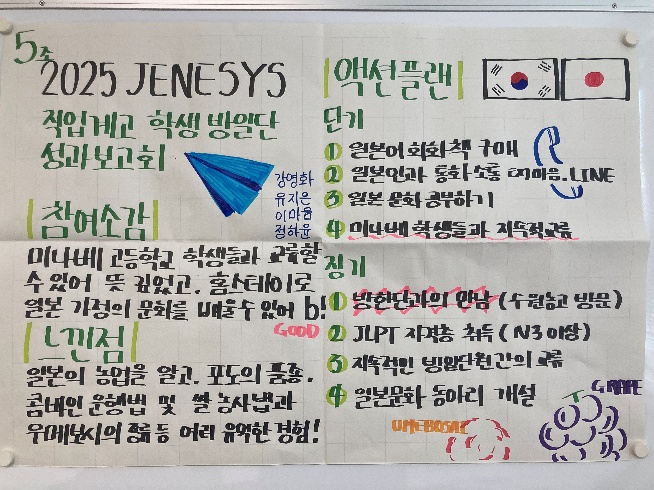 5조
2025 JENESYS
직업계고 학생 방일단
성과보고회
강영화
유지은
이마음
정하윤
참여소감
미나베 고등학교 학생들과 교류할
수 있어 뜻 깊었고, 홈스테이로
일본 가정의 문화를 배울 수 있어 b!
GOOD
느낀점
일본의 농업을 알고, 포도의 품종,
콤바인 운행법 및 쌀 농사법과
우메보시의 종류 등 여러 유익한 경험!
액션플랜
단기
1 일본어 회화책 구매
2 일본인과 동화 소통 마음.LINE
3 일본 문화 공부하기
4 미나베 학생들과 지속적 교류
장기
1 방한단과의 만남 (수원농고 방문)
2 JLPT 자격증 취득 (N3 이상)
3 지속적인 방일단원간의 교류
4 일본문화 동아리 개설
UMEBOSHI
GRAPE